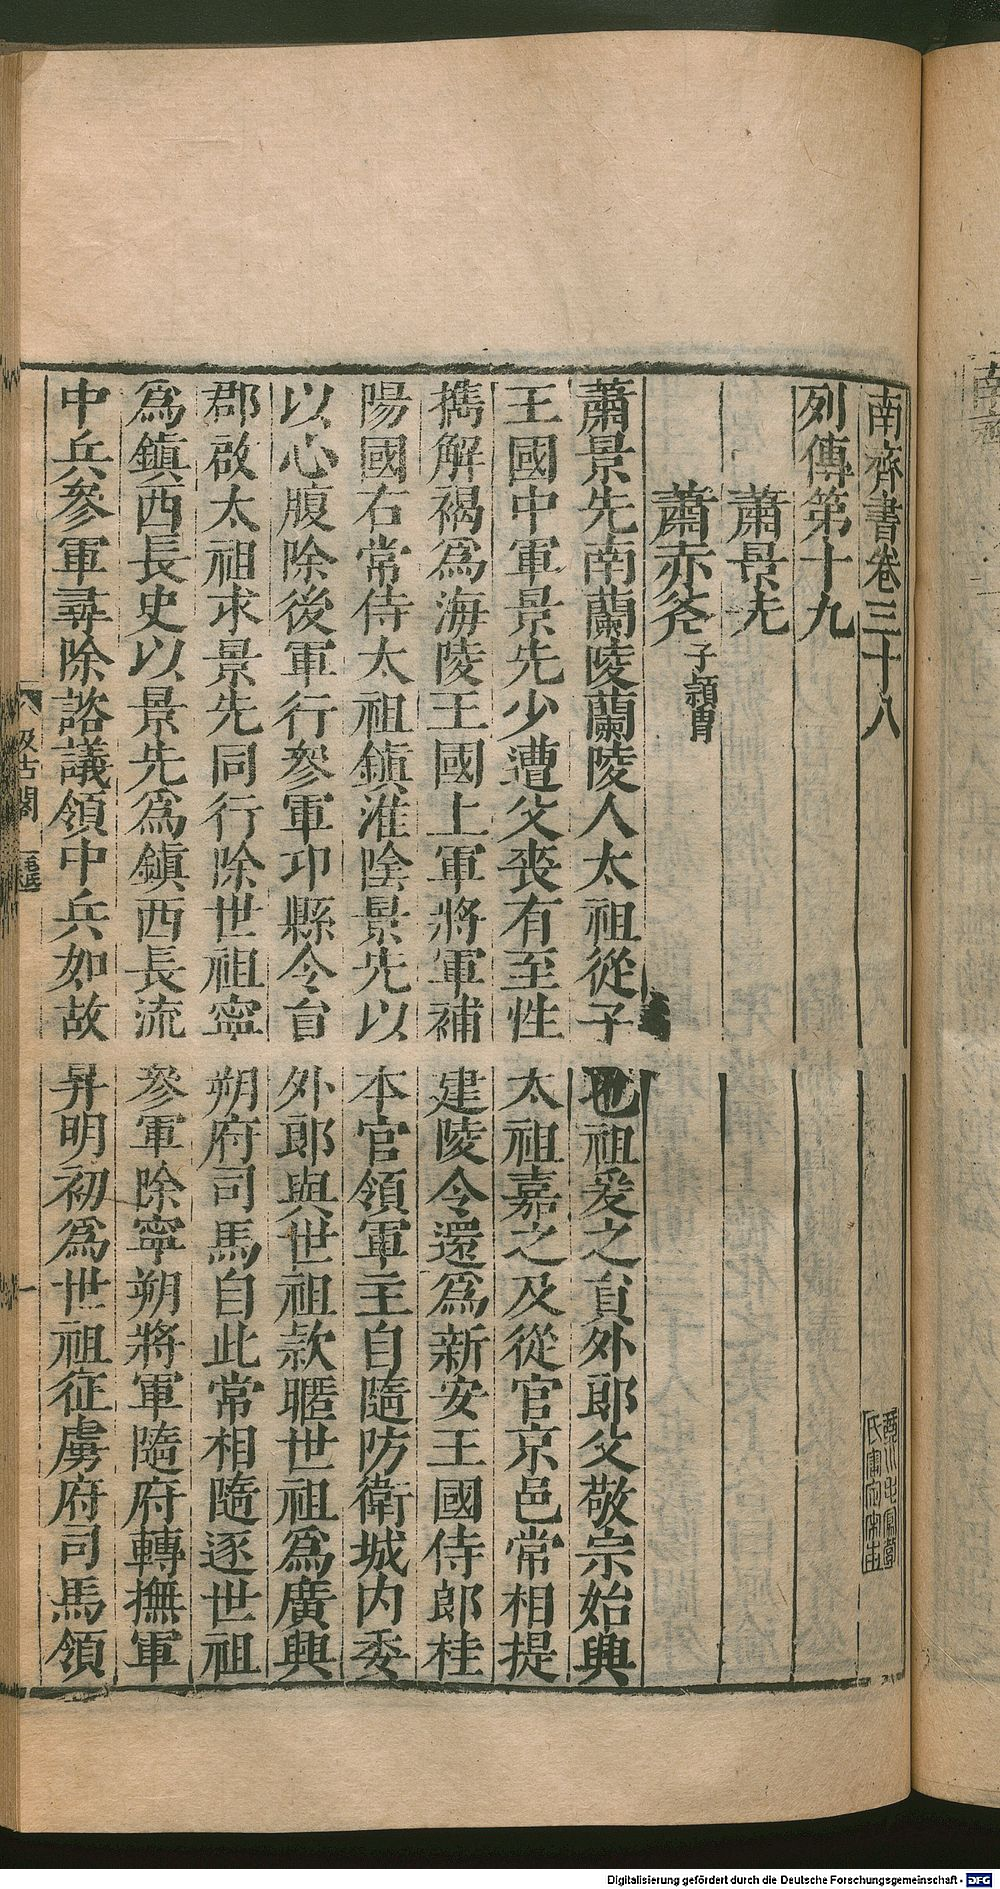 南齊書卷三十八
列傳第十九
蕭景先
蕭赤斧 子頴胄
蕭景先南蘭陵蘭陵人太祖從子也祖爰之員外郎父敬宗始興
王國中軍景先少遭父喪有至性太祖嘉之及從官京邑常相提
攜解褐爲海陵王國上軍將軍補建陵令還爲新安王國侍郎桂
陽國右常侍太祖鎮淮陰景先以本官領軍主自隨防衛城内委
以心腹除後軍行參軍邛縣令員外郎與世祖款暱世祖爲廣興
郡啟太祖求景先同行除世祖寧朔府司馬自此常相隨逐世祖
爲鎮西長史以景先爲鎮西長流參軍除寧朔將軍隨府轉撫軍
中兵參軍尋除諮議領中兵如故昇明初爲世祖征虜府司馬領
汲古閣
一
Digitalisierung gefördert durch die Deutsche Forschungsgemeinschaft - DFG